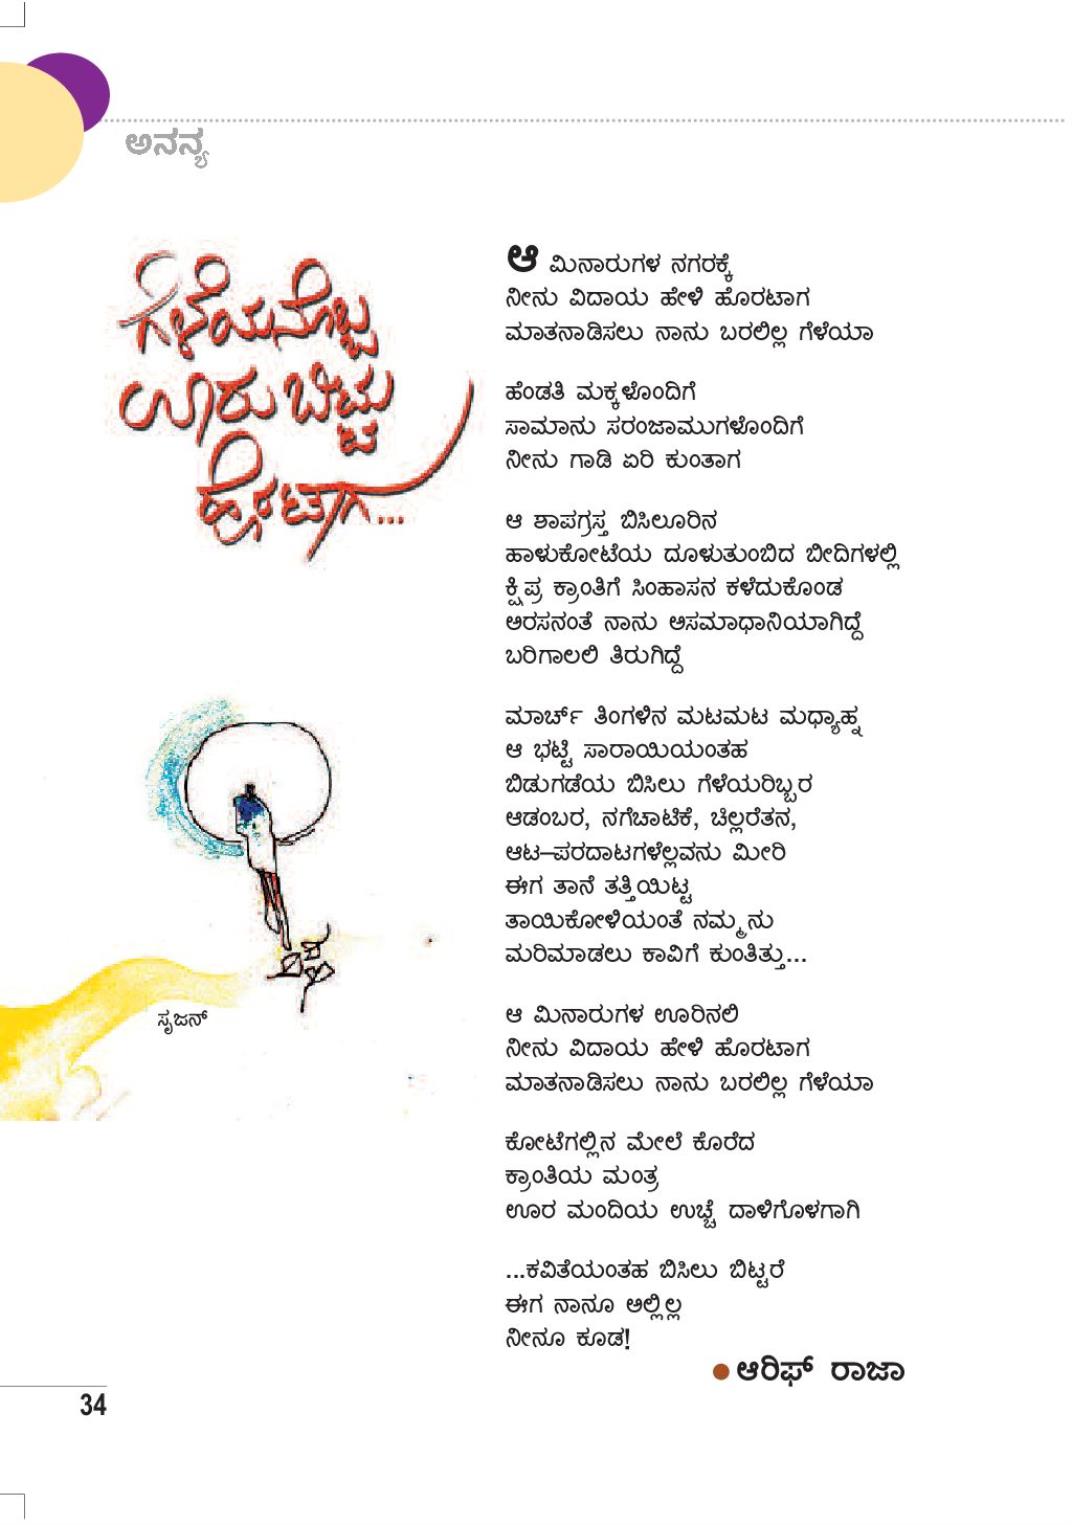 ಅನನ್ಯ
ಗೆಳೆಯನೊಬ್ಬ
ಊರು ಬಿಟ್ಟು
ಹೊರಟಾಗ...
ಆ ಮಿನಾರುಗಳ ನಗರಕ್ಕೆ
ನೀನು ವಿದಾಯ ಹೇಳಿ ಹೊರಟಾಗ
ಮಾತನಾಡಿಸಲು ನಾನು ಬರಲಿಲ್ಲ ಗೆಳೆಯಾ
ಹೆಂಡತಿ ಮಕ್ಕಳೊಂದಿಗೆ
ಸಾಮಾನು ಸರಂಜಾಮುಗಳೊಂದಿಗೆ
ನೀನು ಗಾಡಿ ಏರಿ ಕುಂತಾಗ
ಆ ಶಾಪಗ್ರಸ್ತ ಬಿಸಿಲೂರಿನ
ಹಾಳುಕೋಟೆಯ ದೂಳುತುಂಬಿದ ಬೀದಿಗಳಲ್ಲಿ
ಕ್ಷಿಪ್ರ ಕ್ರಾಂತಿಗೆ ಸಿಂಹಾಸನ ಕಳೆದುಕೊಂಡ
ಅರಸನಂತೆ ನಾನು ಅಸಮಾಧಾನಿಯಾಗಿದ್ದೆ
ಬರಿಗಾಲಲಿ ತಿರುಗಿದ್ದೆ
ಮಾರ್ಚ್ ತಿಂಗಳಿನ ಮಟಮಟ ಮಧ್ಯಾಹ್ನ
ಆ ಭಟ್ಟಿ ಸಾರಾಯಿಯಂತಹ
ಬಿಡುಗಡೆಯ ಬಿಸಿಲು ಗೆಳೆಯರಿಬ್ಬರ
ಆಡಂಬರ, ನಗೆಚಾಟಿಕೆ, ಚಿಲ್ಲರೆತನ,
ಆಟ–ಪರದಾಟಗಳೆಲ್ಲವನು ಮೀರಿ
ಈಗ ತಾನೆ ತತ್ತಿಯಿಟ್ಟ
ತಾಯಿಕೋಳಿಯಂತೆ ನಮ್ಮನು
ಮರಿಮಾಡಲು ಕಾವಿಗೆ ಕುಂತಿತ್ತು...
ಆ ಮಿನಾರುಗಳ ಊರಿನಲಿ
ನೀನು ವಿದಾಯ ಹೇಳಿ ಹೊರಟಾಗ
ಮಾತನಾಡಿಸಲು ನಾನು ಬರಲಿಲ್ಲ ಗೆಳೆಯಾ
ಕೋಟೆಗಲ್ಲಿನ ಮೇಲೆ ಕೊರೆದ
ಕ್ರಾಂತಿಯ ಮಂತ್ರ
ಊರ ಮಂದಿಯ ಉಚ್ಚೆ ದಾಳಿಗೊಳಗಾಗಿ
...ಕವಿತೆಯಂತಹ ಬಿಸಿಲು ಬಿಟ್ಟರೆ
ಈಗ ನಾನೂ ಅಲ್ಲಿಲ್ಲ
ನೀನೂ ಕೂಡ!
ಆರಿಫ್ ರಾಜಾ
ಸೃಜನ್
34